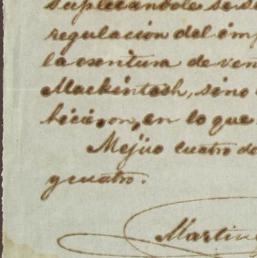 suplicandole se s
regulacion del imp
la escritura de ven
Mackintosh, sino
hicieron, en lo que
Mejico cuatro de
y cuatro.
Martin